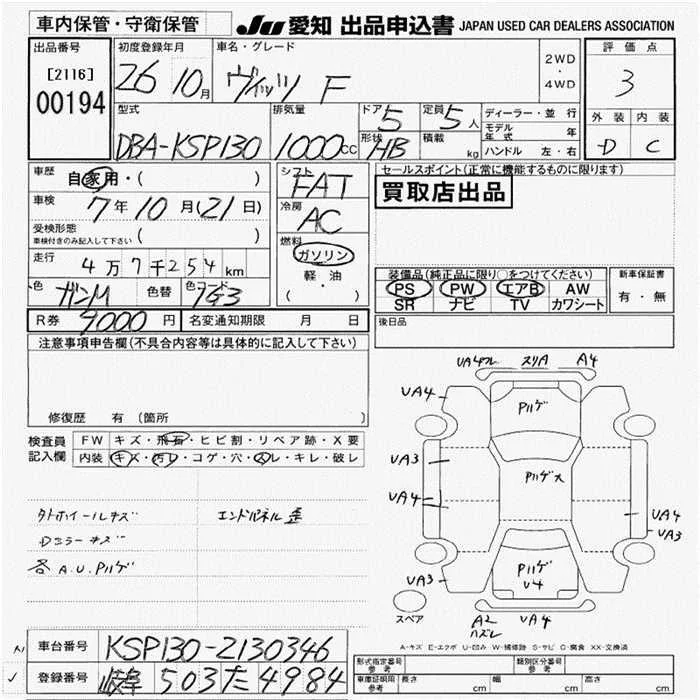 車内保管・守衛保管
JU 愛知 出品申込書 JAPAN USED CAR DEALERS ASSOCIATION
出品番号 初度登録年月 車名・グレード 2WD・4WD 評価点
[2116]
00194
26 10月 ヴィッツ F 3
型式 排気量 ドア 定員 ディーラー・並行 外装 内装
DBA-KSP130 1000cc 5 5人 モデル年式 年
形状 HB 積載 kg ハンドル 左・右 D C
車歴 自家用・( ) シフト FAT セールスポイント(正常に機能するものに限ります)
買取店出品
車検 7年10月(21日) 冷房 AC
受検形態 ( )
車検付きのみ記入して下さい
燃料 ガソリン
軽・油
( )
走行 4万7千254km
装備品(純正品に限り○をつけてください) 新車保証書
PS PW エアB AW 有・無
SR ナビ TV カワシート
色 ガンM 色替 色コード 1G3
R券 9000円 名変通知期限 月 日
後日品
注意事項申告欄(不具合内容等は具体的に記入して下さい)
修復歴 有(箇所 )
検査員記入欄 FW キズ・飛石・ヒビ割・リペア跡・X要
内装 キズ・汚レ・コゲ・穴・スレ・キレ・破レ
タトホイールキズ エンドパネル歪
Dミラーキズ
各A.U.Pハゲ
UA4 スリA A4
UA4 Pハゲ
UA3 Pハゲ大
UA4 UA4
UA3
UA3 Pハゲ
U4
スペア A2 UA4
ハズレ
A-キズ E-エクボ U-凹み W-補修跡 S-サビ C-腐食 XX-交換済
車台番号 KSP130-2130346
登録番号 岐阜 503 た 4984
型式指定番号 参考 類別区分番号 参考
車庫証明用 参考 長さ cm 幅 cm 高さ cm